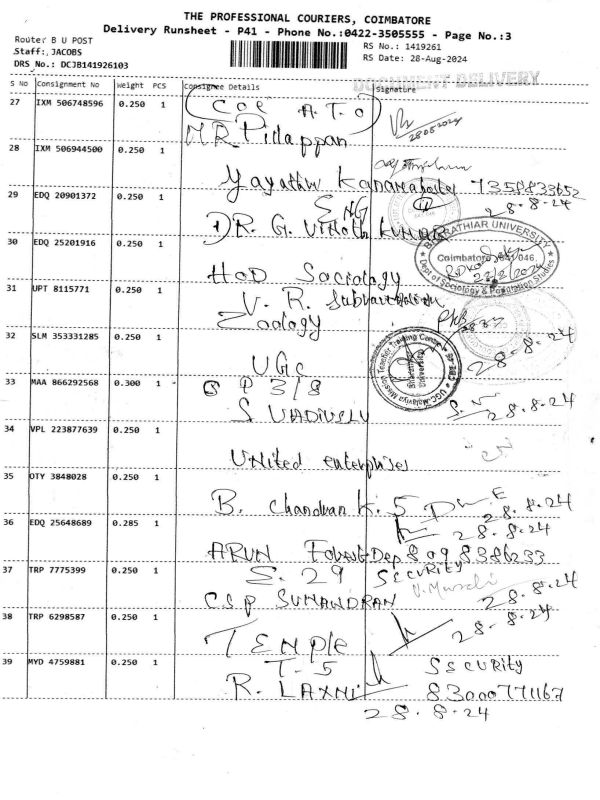 THE PROFESSIONAL COURIERS, COIMBATORE
Delivery Runsheet - P41 - Phone No.:0422-3505555 - Page No.:3
Route: B U POST
Staff: JACOBS
DRS No.: DCJB141926103
RS No.: 1419261
RS Date: 28-Aug-2024
DOCUMENT DELIVERY
S No Consignment No Weight PCS Consignee Details Signature
27 IXM 506748596 0.250 1 COE A.T.O
MR. Pillappan 28/08/2024
28 IXM 506944500 0.250 1
Yayathiv 7358833652
29 EDQ 20901372 0.250 1 ENG 28-8-24
DR. G. Vinoth KUMAR
30 EDQ 25201916 0.250 1
BHARATHIAR UNIVERSITY
Coimbatore 641 046.
Dept of Sociology & Population Studies
HOD Sociology
31 UPT 8115771 0.250 1 V. R.
Zoology
32 SLM 353331285 0.250 1 28-8-24
UGC
UGC-Malaviya Mission Teacher Training Centre
Bharathiar University
CBE - 46
33 MAA 866292568 0.300 1 G P 3/8
S VADIVELU S. 28-8-24
34 VPL 223877639 0.250 1
United enterprises
35 OTY 3848028 0.250 1
B. Chandran K. 5 28.8.24
36 EDQ 25648689 0.285 1 28-8-24
ARUN Forest Dep 809 8386233
37 TRP 7775399 0.250 1 S. 29 SECURITY
C.S.P SUNANDRAN 28-8-24
38 TRP 6298587 0.250 1 28-8-24
TEMPLE
39 MYD 4759881 0.250 1 T-5 SECURITY
R. LAXMI 83000771167
28-8-24